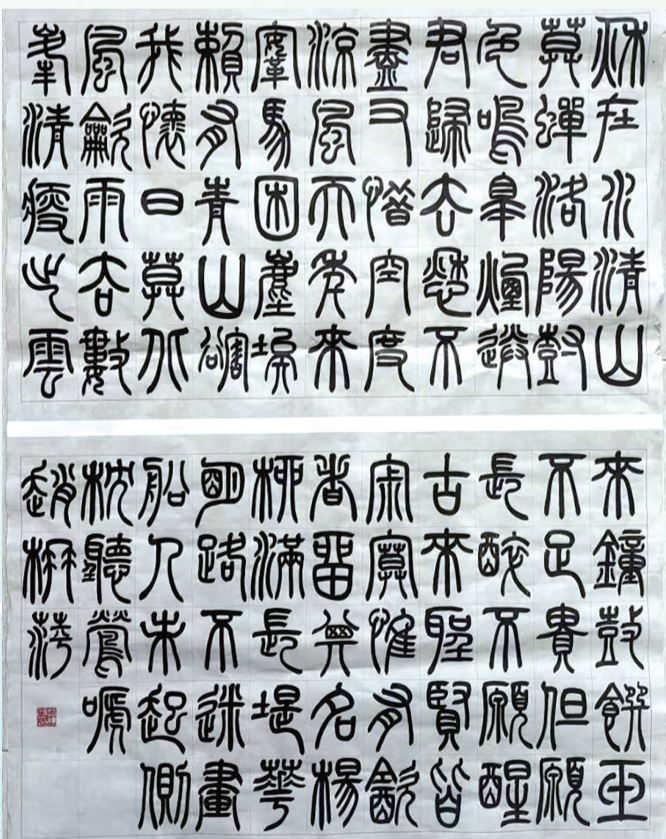 秋在水清山
莫蟬洛陽樹
色鳴皋煙送
君歸去愁不
盡又惜空度
涼風天年來
鞍馬困塵埃
賴有青山豁
我懷日莫北
風吹雨去數
峯清瘦出雲
來鐘鼓饌玉
不足貴但願
長醉不願醒
古來聖賢皆
寂寞惟有飲
者留其名楊
柳滿長堤華
明路不迷畫
船人未起側
枕聽鶯啼
趙